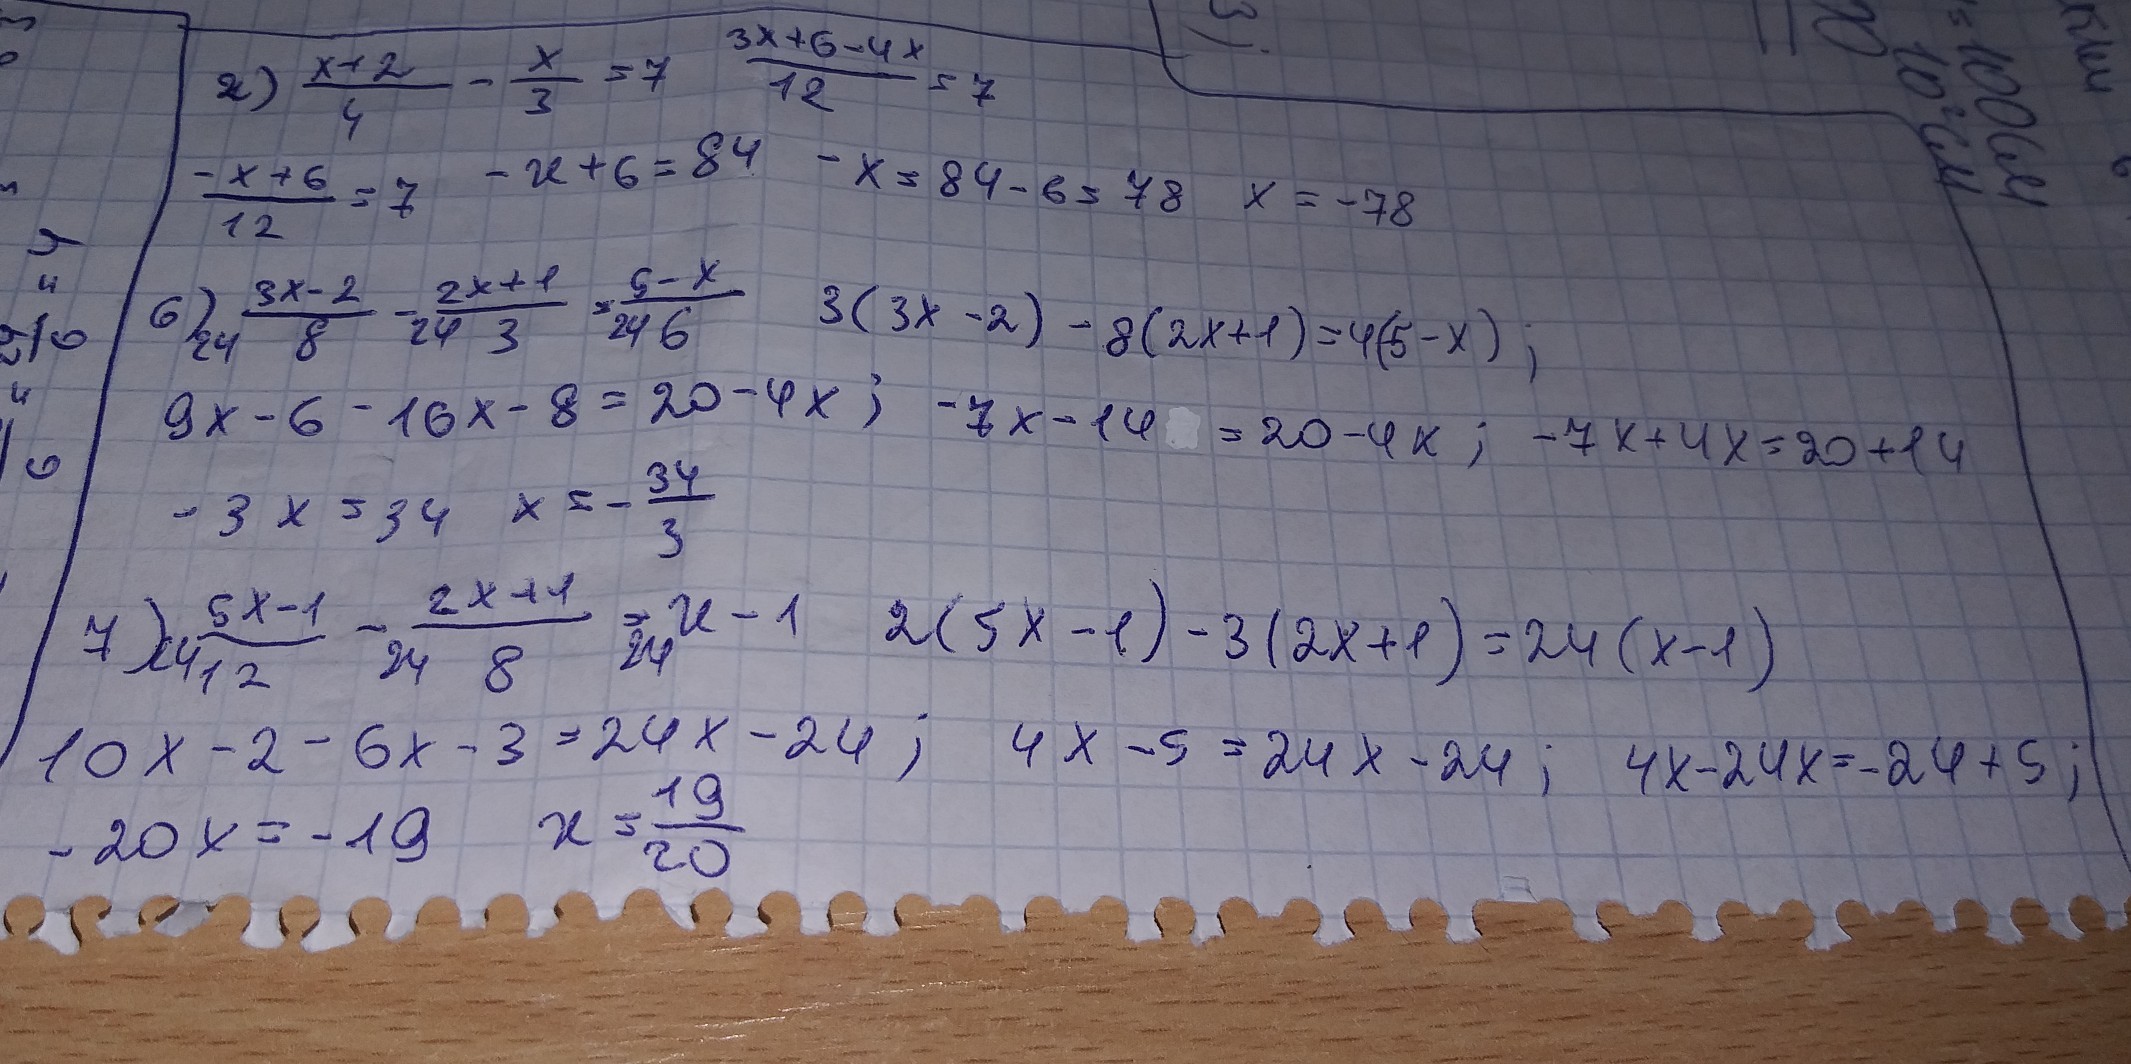 2) (x+2)/4 - x/3 = 7 (3x+6-4x)/12 = 7
(-x+6)/12 = 7 -x+6=84 -x=84-6=78 x=-78
6) 24 (3x-2)/8 - 24 (2x+1)/3 = 24 (5-x)/6 3(3x-2)-8(2x+1)=4(5-x);
9x-6-16x-8=20-4x; -7x-14=20-4x; -7x+4x=20+14
-3x=34 x=-34/3
7) 24 (5x-1)/12 - 24 (2x+1)/8 = 24 x-1 2(5x-1)-3(2x+1)=24(x-1)
10x-2-6x-3=24x-24; 4x-5=24x-24; 4x-24x=-24+5;
-20x=-19 x=19/20
3)
=100см
10²см